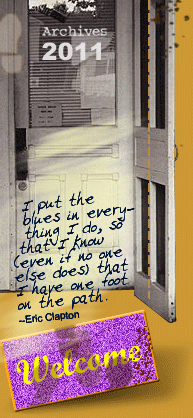 Archives
2011
I put the
blues in every-
thing I do, so
that I know
(even if no one
else does) that
I have one foot
on the path.
--Eric Clapton
Welcome